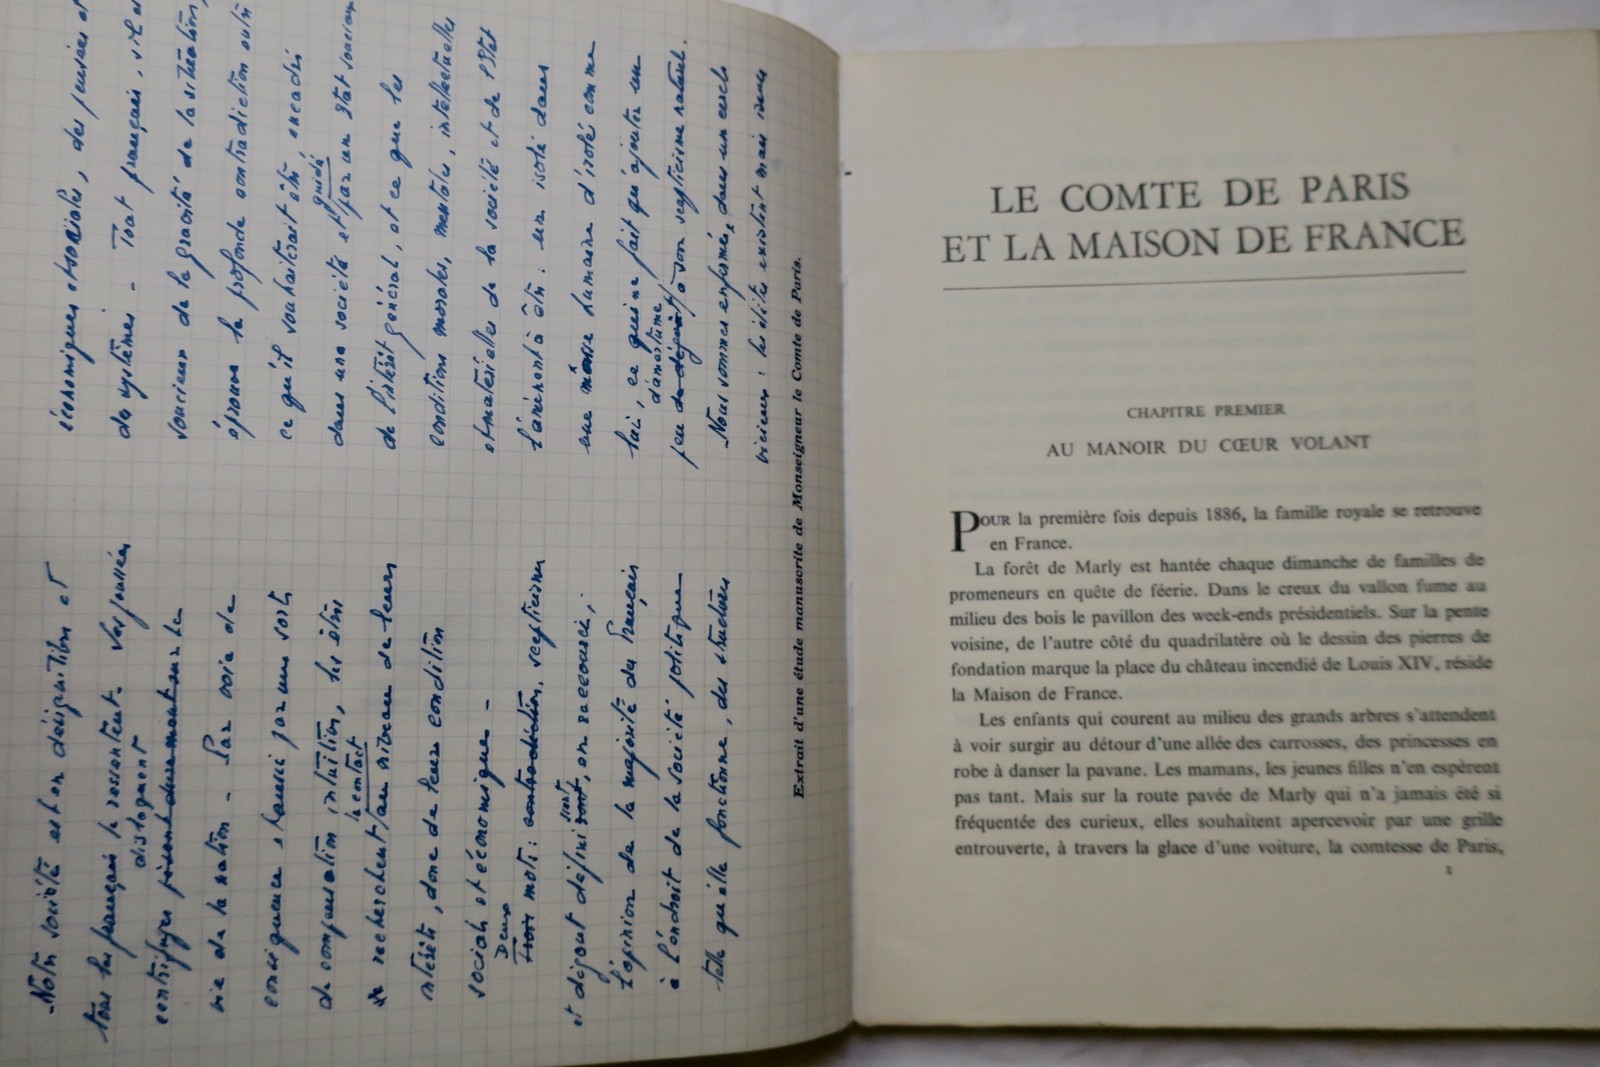 Notre société est en déséquilibre et
tous les français le ressentent. Les poussées
disloquent
centrifuges la
vie de la nation - Par voie de
conséquence et aussi par une sorte
de compensation, intuition, les êtres
le contact
se recherchent au niveau de leurs
intérêts, donc de leur condition
sociale et économique -
Deux
Trois mots : contradiction, scepticisme
et dégout définissent, en raccourci,
l'opinion de la majorité des Français
à l'endroit de la société politique
telle qu'elle fonctionne, des structures
économiques et sociales, des
de systèmes - Tout français, s'il est
soucieux de la gravité de la situation,
éprouve la profonde contradiction entre
ce qu'il souhaiterait être, encadré
guidé
dans une société et par un Etat soucieux
de l'intérêt général, et ce que les
conditions morales, mentales, intellectuelles
et matérielles de la société et de l'Etat
l'amènent à être : un isolé dans
une masse humaine d'isolés comme
lui, ce qui ne fait qu'ajouter un
d'amertume
peu de dégoût à son scepticisme naturel.
Nous sommes enfermés dans un cercle
vicieux : les élites existent mais
Extrait d'une étude manuscrite de Monseigneur le Comte de Paris.
LE COMTE DE PARIS
ET LA MAISON DE FRANCE
CHAPITRE PREMIER
AU MANOIR DU CŒUR VOLANT
POUR la première fois depuis 1886, la famille royale se retrouve
en France.
La forêt de Marly est hantée chaque dimanche de familles de
promeneurs en quête de féerie. Dans le creux du vallon fume au
milieu des bois le pavillon des week-ends présidentiels. Sur la pente
voisine, de l'autre côté du quadrilatère où le dessin des pierres de
fondation marque la place du château incendié de Louis XIV, réside
la Maison de France.
Les enfants qui courent au milieu des grands arbres s'attendent
à voir surgir au détour d'une allée des carrosses, des princesses en
robe à danser la pavane. Les mamans, les jeunes filles n'en espèrent
pas tant. Mais sur la route pavée de Marly qui n'a jamais été si
fréquentée des curieux, elles souhaitent apercevoir par une grille
entrouverte, à travers la glace d'une voiture, la comtesse de Paris,